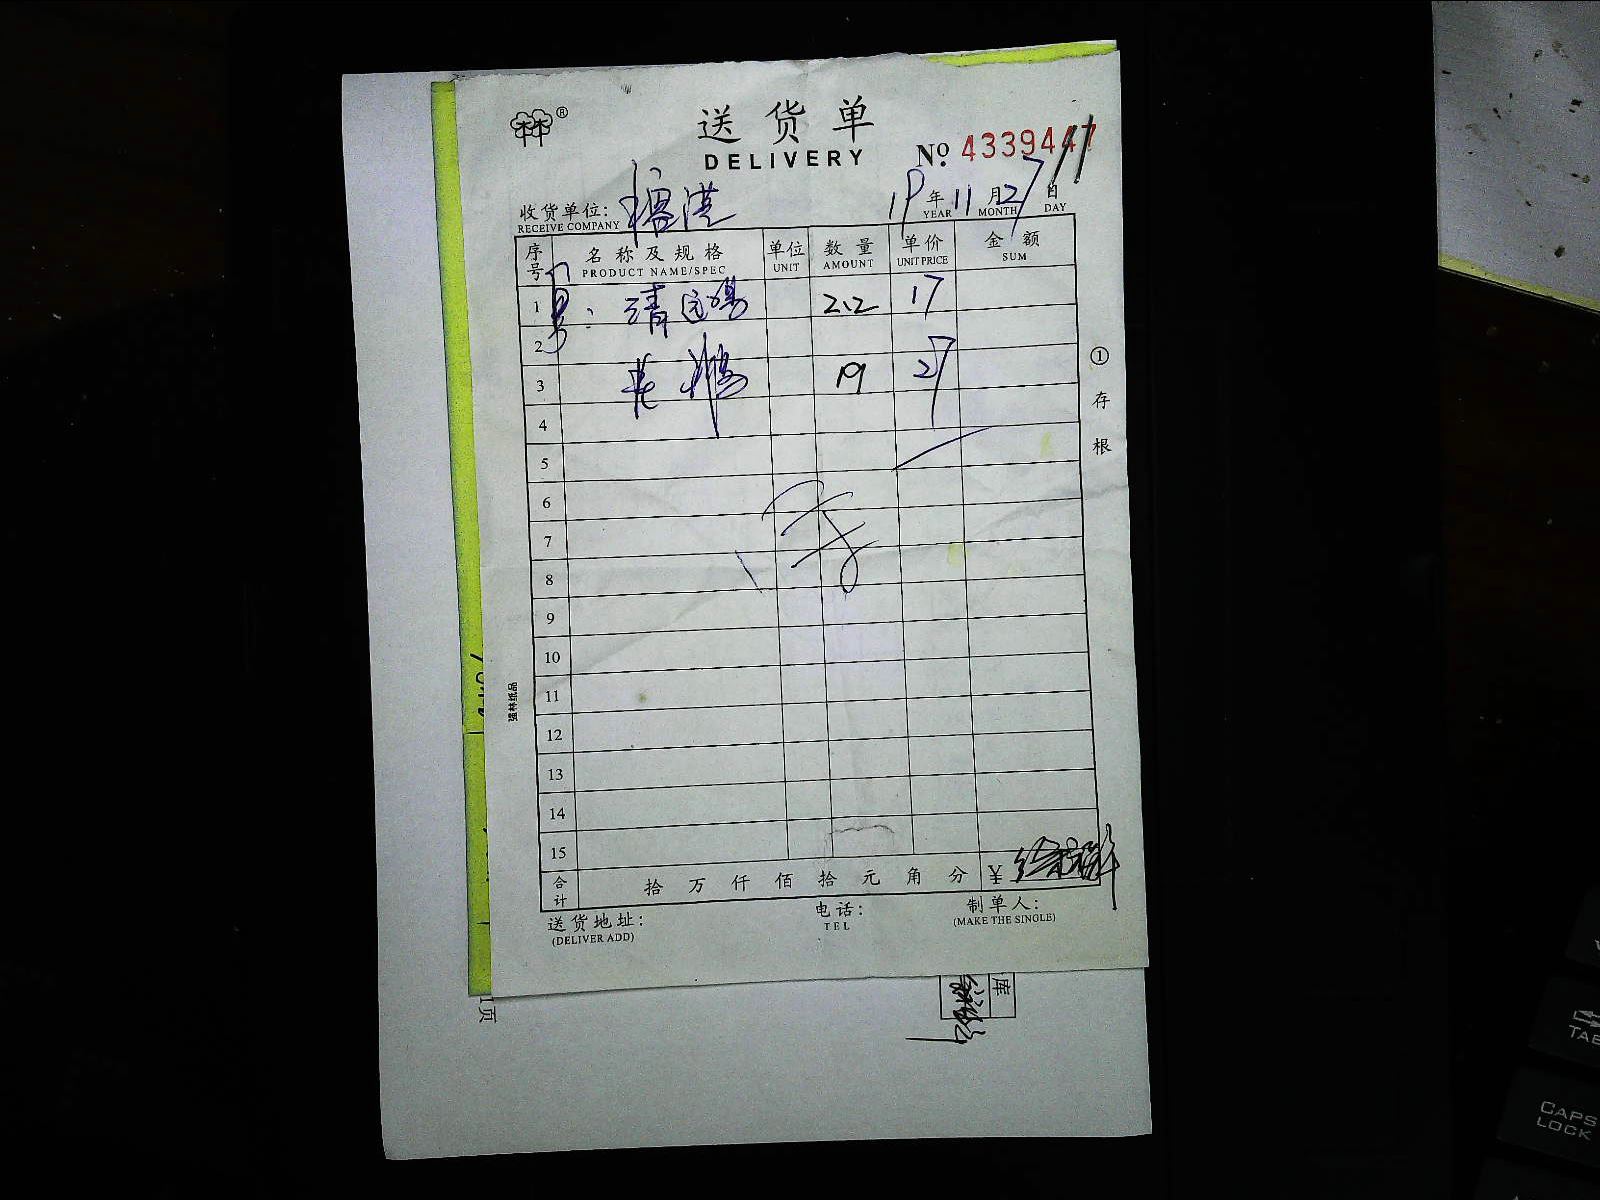 ®
送货单
DELIVERY
No. 4339447
收货单位:
19年11月27日
RECEIVE COMPANY YEAR MONTH DAY
序号 名称及规格 单位 数量 单价 金额
PRODUCT NAME/SPEC UNIT AMOUNT UNIT PRICE SUM
1 清远鸡 2.2 17
2
3 19 27
4
5
6
7
8
9
10
11
12
13
14
15
合计 拾 万 仟 佰 拾 元 角 分 ¥
送货地址: 电话: 制单人:
(DELIVER ADD) TEL (MAKE THE SINGLE)
①存根
强林纸品
库
1页
TAB
CAPS LOCK